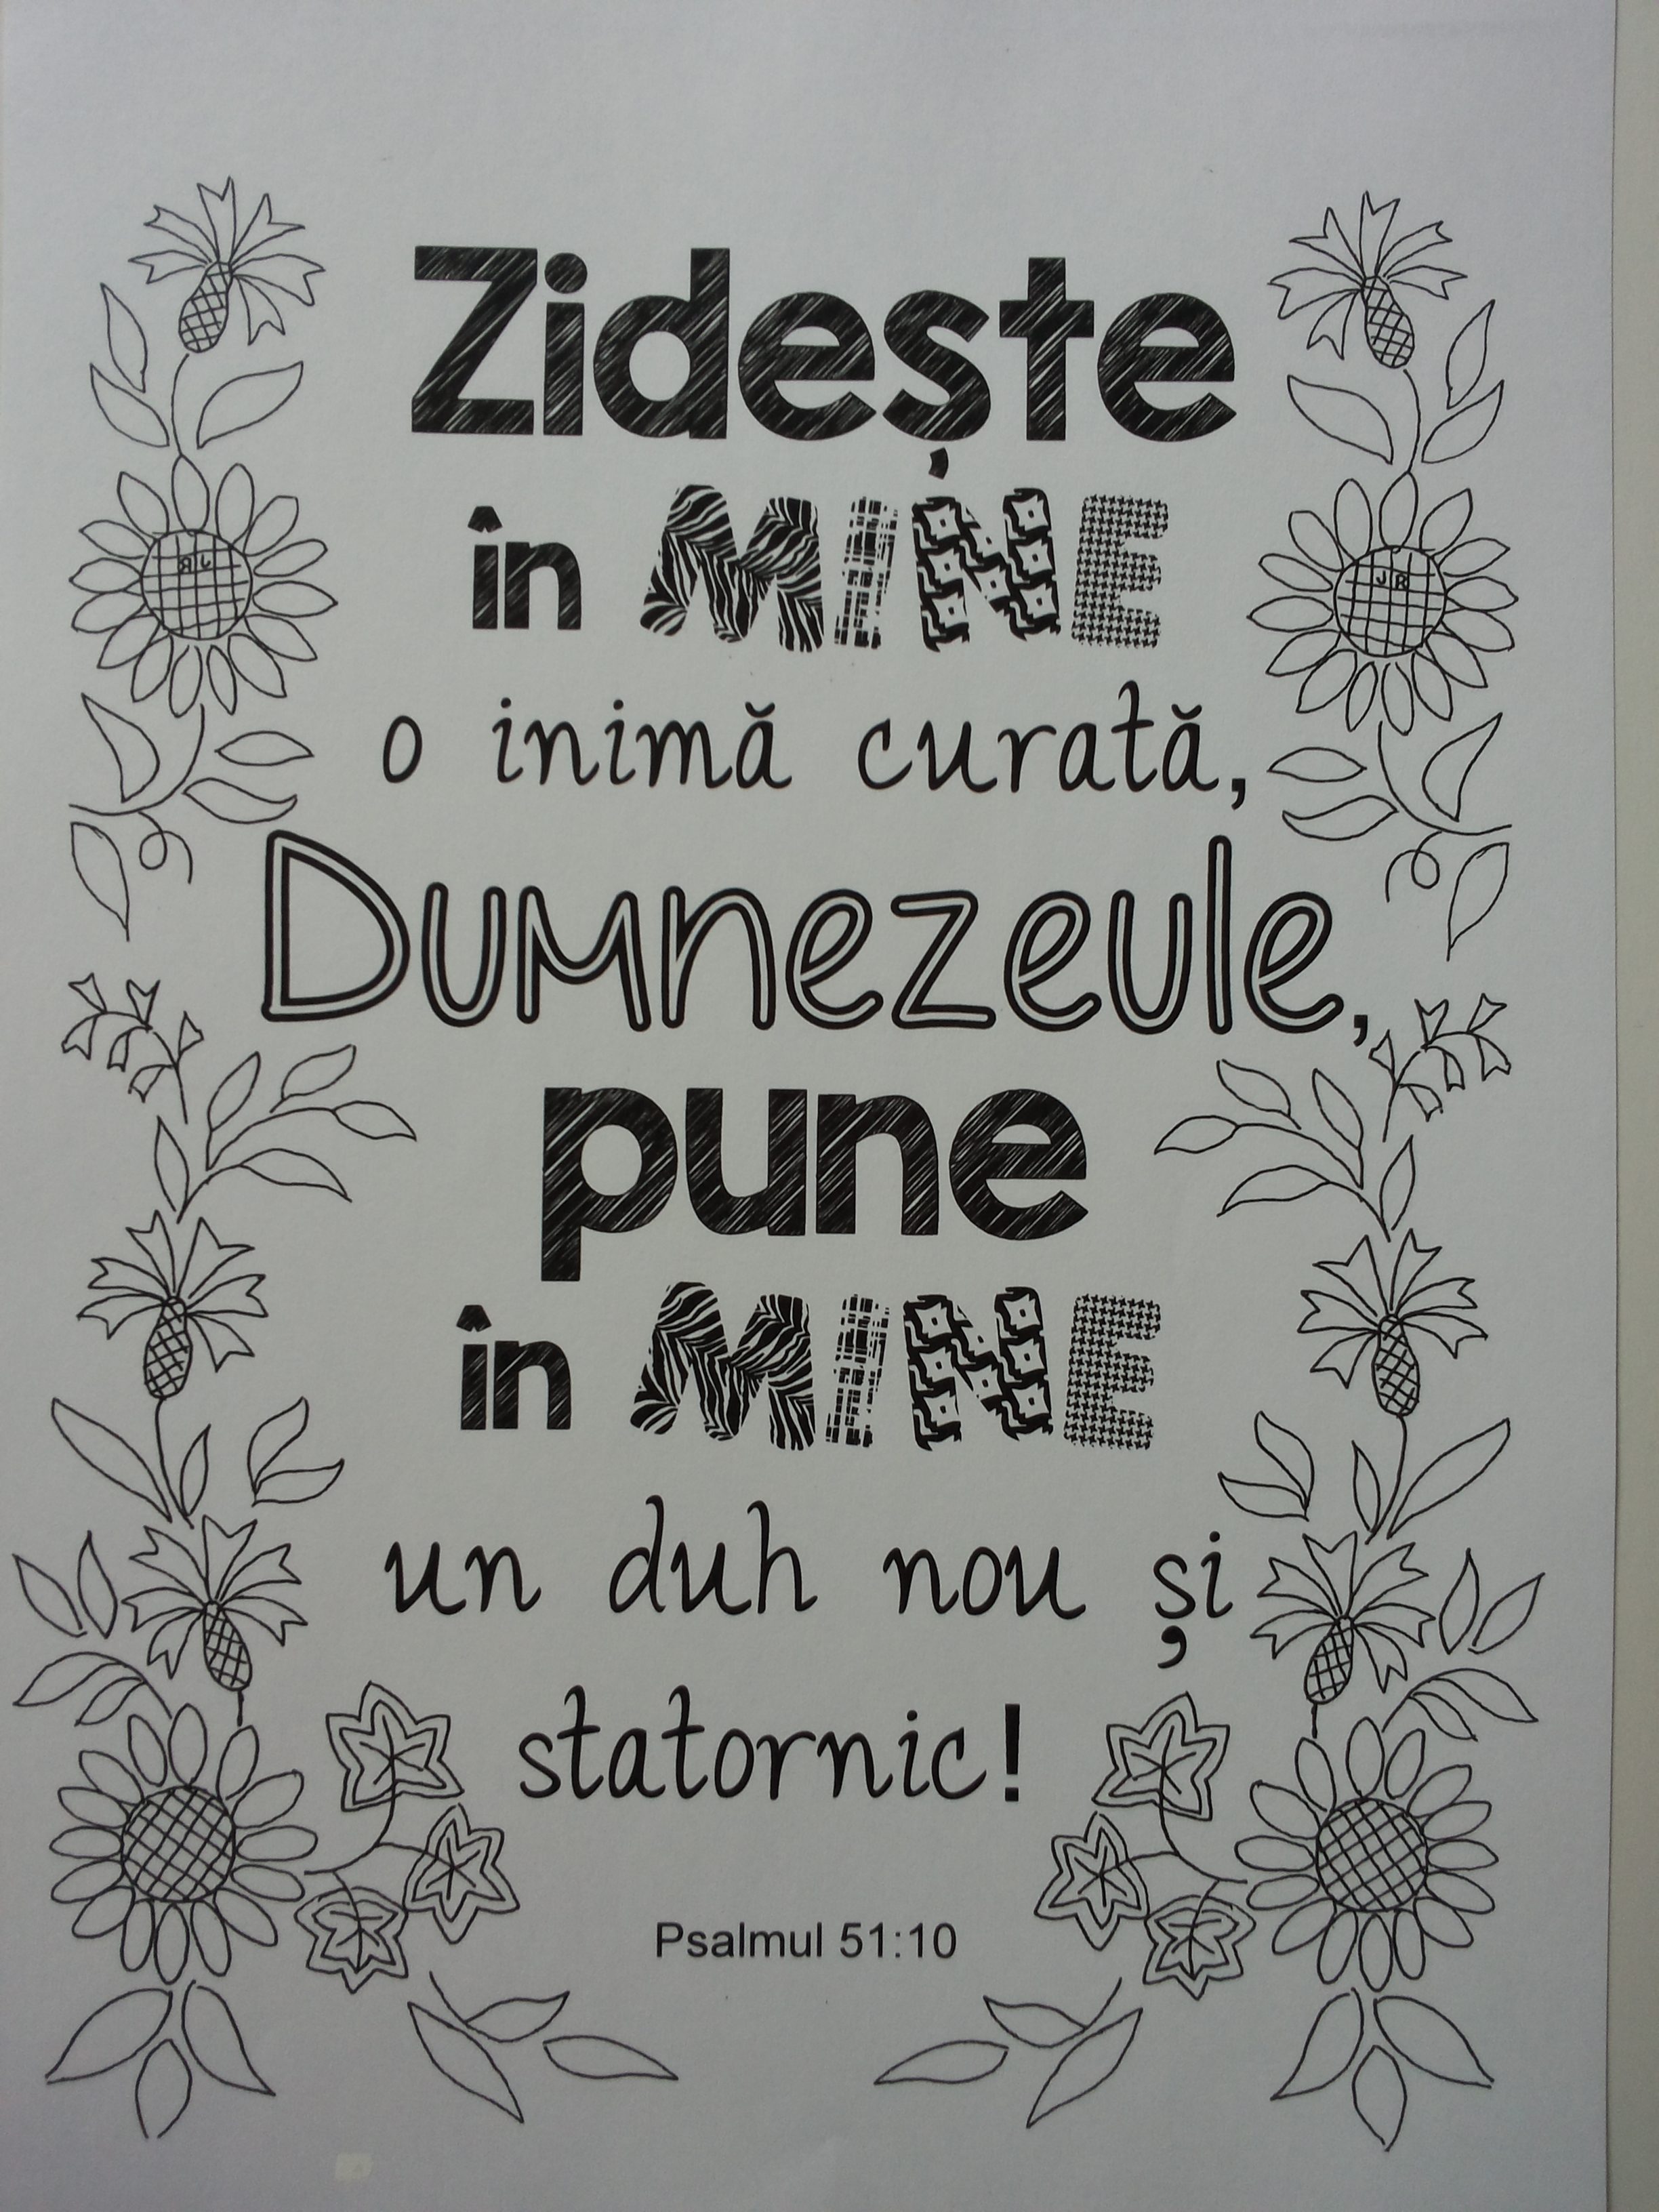 Zidește
în MINE
o inimă curată,
Dumnezeule,
pune
în MINE
un duh nou și
statornic!
Psalmul 51:10
JR
JR